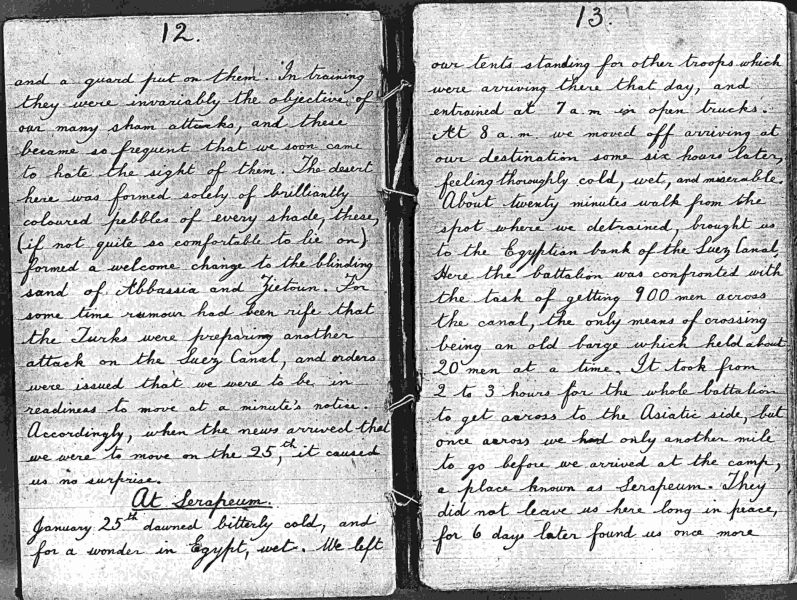 12.
and a guard put on them. In training
they were invariably the objective, of
our many sham attacks, and these
became so frequent that we soon came
to hate the sight of them. The desert
here was formed solely of brilliantly
coloured pebbles of every shade, these,
(if not quite so comfortable to lie on)
formed a welcome change to the blinding
sand of Abbassia and Zietoun. For
some time rumour had been rife that
the Turks were preparing another
attack on the Suez Canal, and orders
were issued that we were to be in
readiness to move at a minute's notice.
Accordingly, when the news arrived that
we were to move on the 25th, it caused
us no surprise.
At Serapeum.
January 25th dawned bitterly cold, and
for a wonder in Egypt, wet. We left
13.
our tents standing for other troops which
were arriving there that day, and
entrained at 7 a.m in open trucks.
At 8 a.m. we moved off arriving at
our destination some six hours later,
feeling thoroughly cold, wet, and miserable.
About twenty minutes walk from the
spot where we detrained, brought us
to the Egyptian bank of the Suez Canal,
Here the battalion was confronted with
the task of getting 900 men across
the canal, the only means of crossing
being an old barge which held about
20 men at a time. It took from
2 to 3 hours for the whole battalion
to get across to the Asiatic side, but
once across we had only another mile
to go before we arrived at the camp,
a place known as Serapeum. They
did not leave us here long in peace,
for 6 days later found us once more